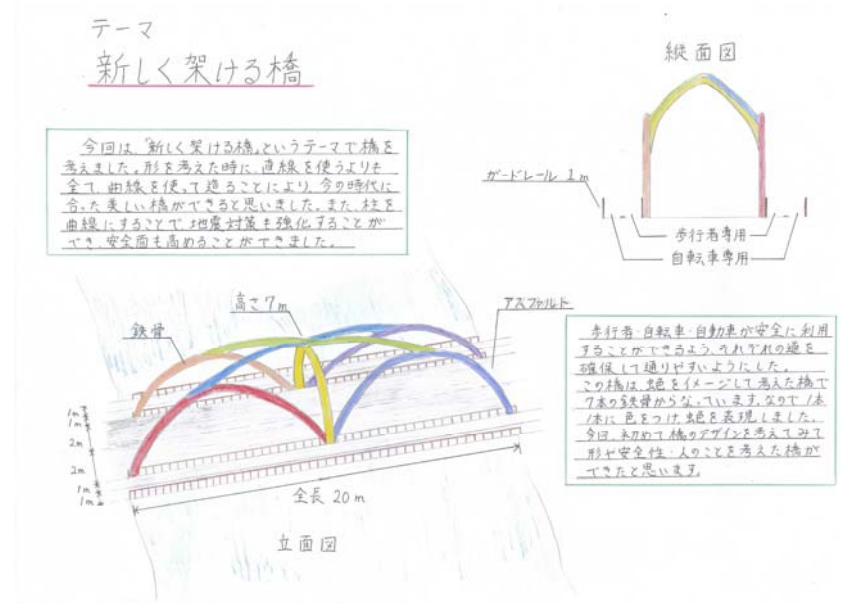 テーマ
新しく架ける橋
今回は、「新しく架ける橋」というテーマで橋を
考えました。形を考えた時に、直線を使うよりも
全て、曲線を使って造ることにより、今の時代に
合った美しい橋ができると思いました。また、柱を
曲線にすることで、地震対策も強化することが
でき、安全面も高めることができました。
縦面図
ガードレール 1m
歩行者専用
自転車専用
高さ7m
鉄骨
アスファルト
1m
1m
2m
2m
1m
1m
全長 20m
立面図
歩行者・自転車・自動車が安全に利用
することができるよう、それぞれの道を
確保して通りやすいようにした。
この橋は、虹色をイメージして考えた橋で
7本の鉄骨からなっています。なので1本
1本に色をつけ、虹色を表現しました。
今回、初めて橋のデザインを考えてみて
形や安全性・人のことを考えた橋が
できたと思います。